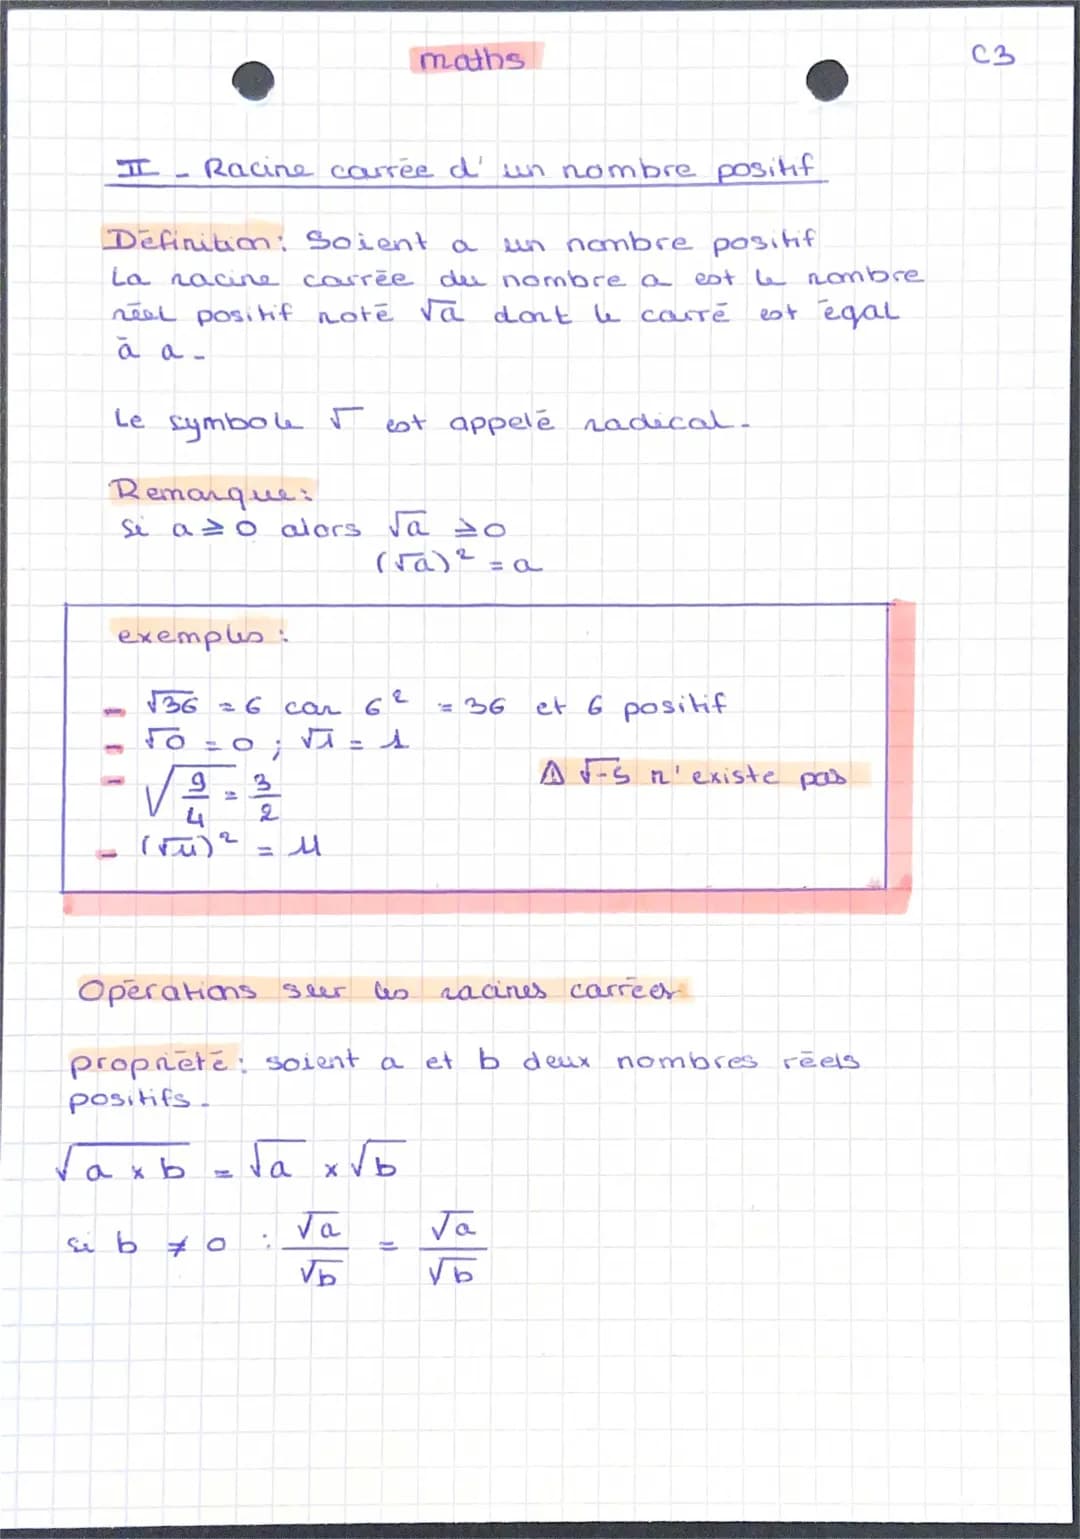 maths
C3
II - Racine carrée d'un nombre positif
Définition: Soient a un nombre positif
La racine carrée du nombre a est le nombre
réel positif noté √a dont le carré est égal
à a -
Le symbole √ est appelé radical -
Remarque:
Si a ≥ 0 alors √a ≥ 0
(√a)² = a
exemples :
- √36 = 6 car 6² = 36 et 6 positif
- √0 = 0 ; √1 = 1
- √9/4 = 3/2
⚠ √-5 n'existe pas
- (√11)² = 11
Opérations sur les racines carrées
propriété: soient a et b deux nombres réels
positifs -
√a × b = √a × √b
si b ≠ 0 : √a/√b = √a/√b